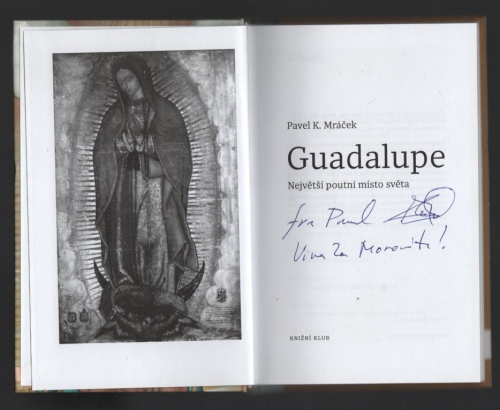 Pavel K. Mráček
Guadalupe
Největší poutní místo světa
fra Pavel
Viva La
KNIŽNÍ KLUB